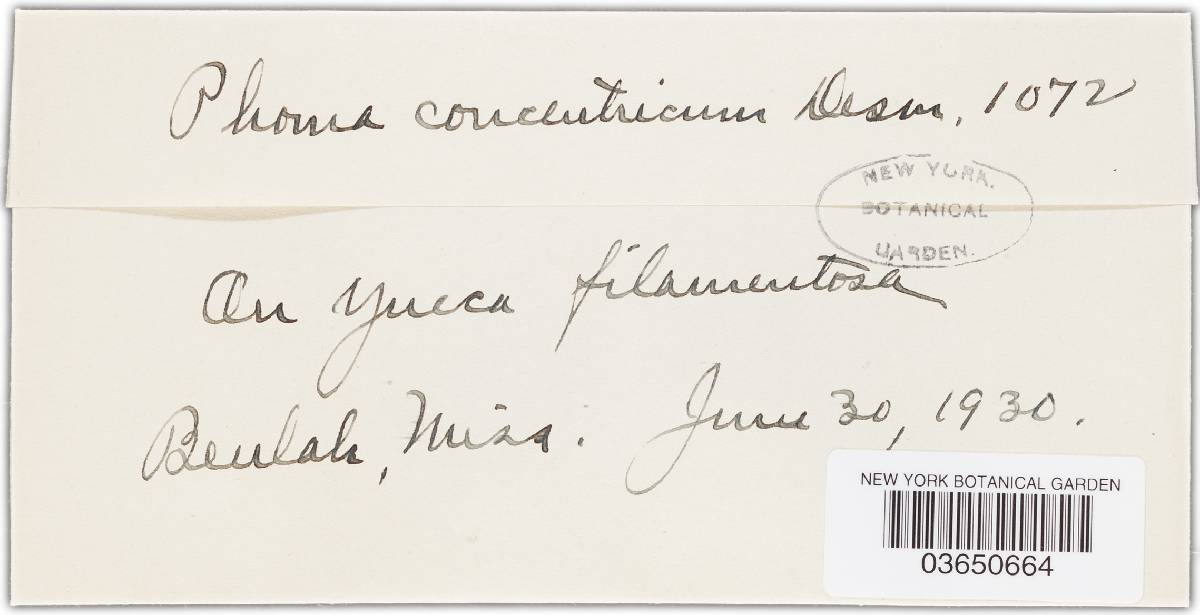 Phoma concentricum Desm. 1072
NEW YORK.
BOTANICAL
GARDEN.
On Yucca filamentosa
Beulah, Miss. June 30, 1930.
NEW YORK BOTANICAL GARDEN
03650664